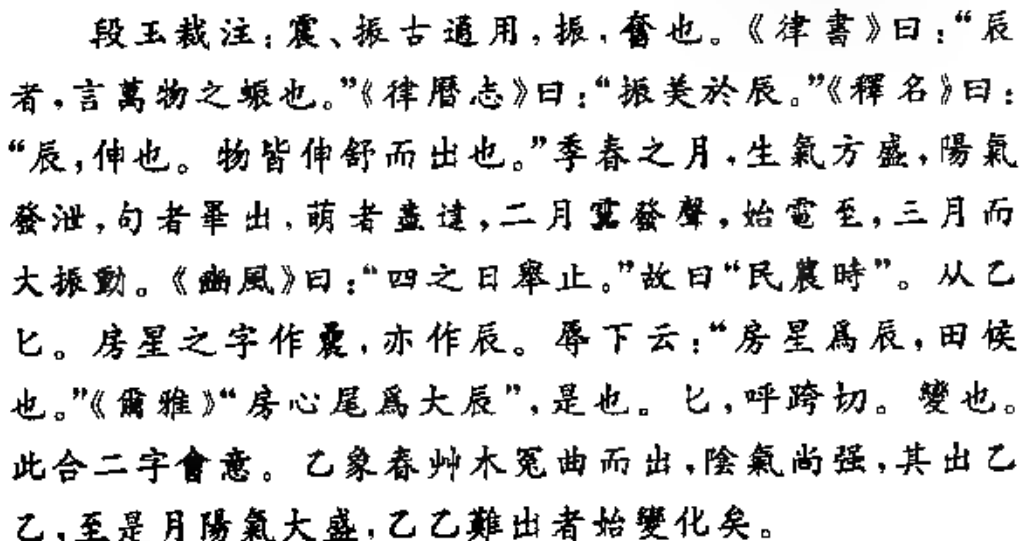 段玉裁注：震、振古通用，振，奮也。《律書》曰：“辰
者，言萬物之蜄也。”《律曆志》曰：“振美於辰。”《釋名》曰：
“辰，伸也。物皆伸舒而出也。”季春之月，生氣方盛，陽氣
發泄，句者畢出，萌者盡達，二月靁發聲，始電至，三月而
大振動。《豳風》曰：“四之日舉止。”故曰“民農時”。从乙
匕。房星之字作曟，亦作辰。辱下云：“房星爲辰，田候
也。”《爾雅》“房心尾爲大辰”，是也。匕，呼跨切。變也。
此合二字會意。乙象春艸木冤曲而出，陰氣尚强，其出乙
乙，至是月陽氣大盛，乙乙難出者始變化矣。